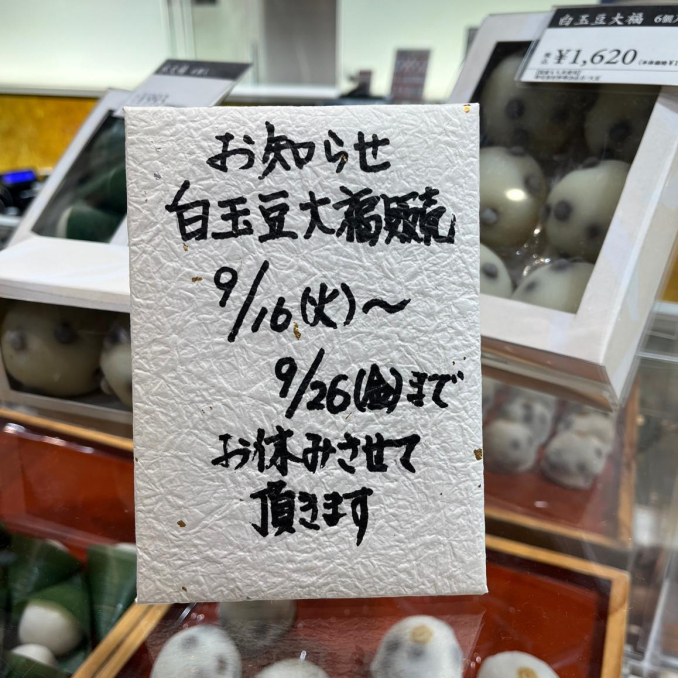 お知らせ
白玉豆大福販売
9/16(火)～
9/26(金)まで
お休みさせて
頂きます
白玉豆大福 6個入
¥1,620